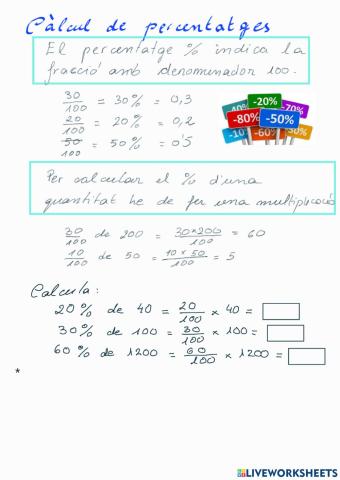 Càlcul de percentatges
El percentatge % indica la
fracció amb denominador 100.
30/100 = 30% = 0,3
20/100 = 20% = 0,2
50/100 = 50% = 0'5
-40% -20% -70%
-80% -50%
-10% -60% -30%
Per calcular el % d'una
quantitat he de fer una multiplicació
30/100 de 200 = 30×200/100 = 60
10/100 de 50 = 10×50/100 = 5
Calcula:
20% de 40 = 20/100 × 40 =
30% de 100 = 30/100 × 100 =
60% de 1200 = 60/100 × 1200 =
*
LIVEWORKSHEETS